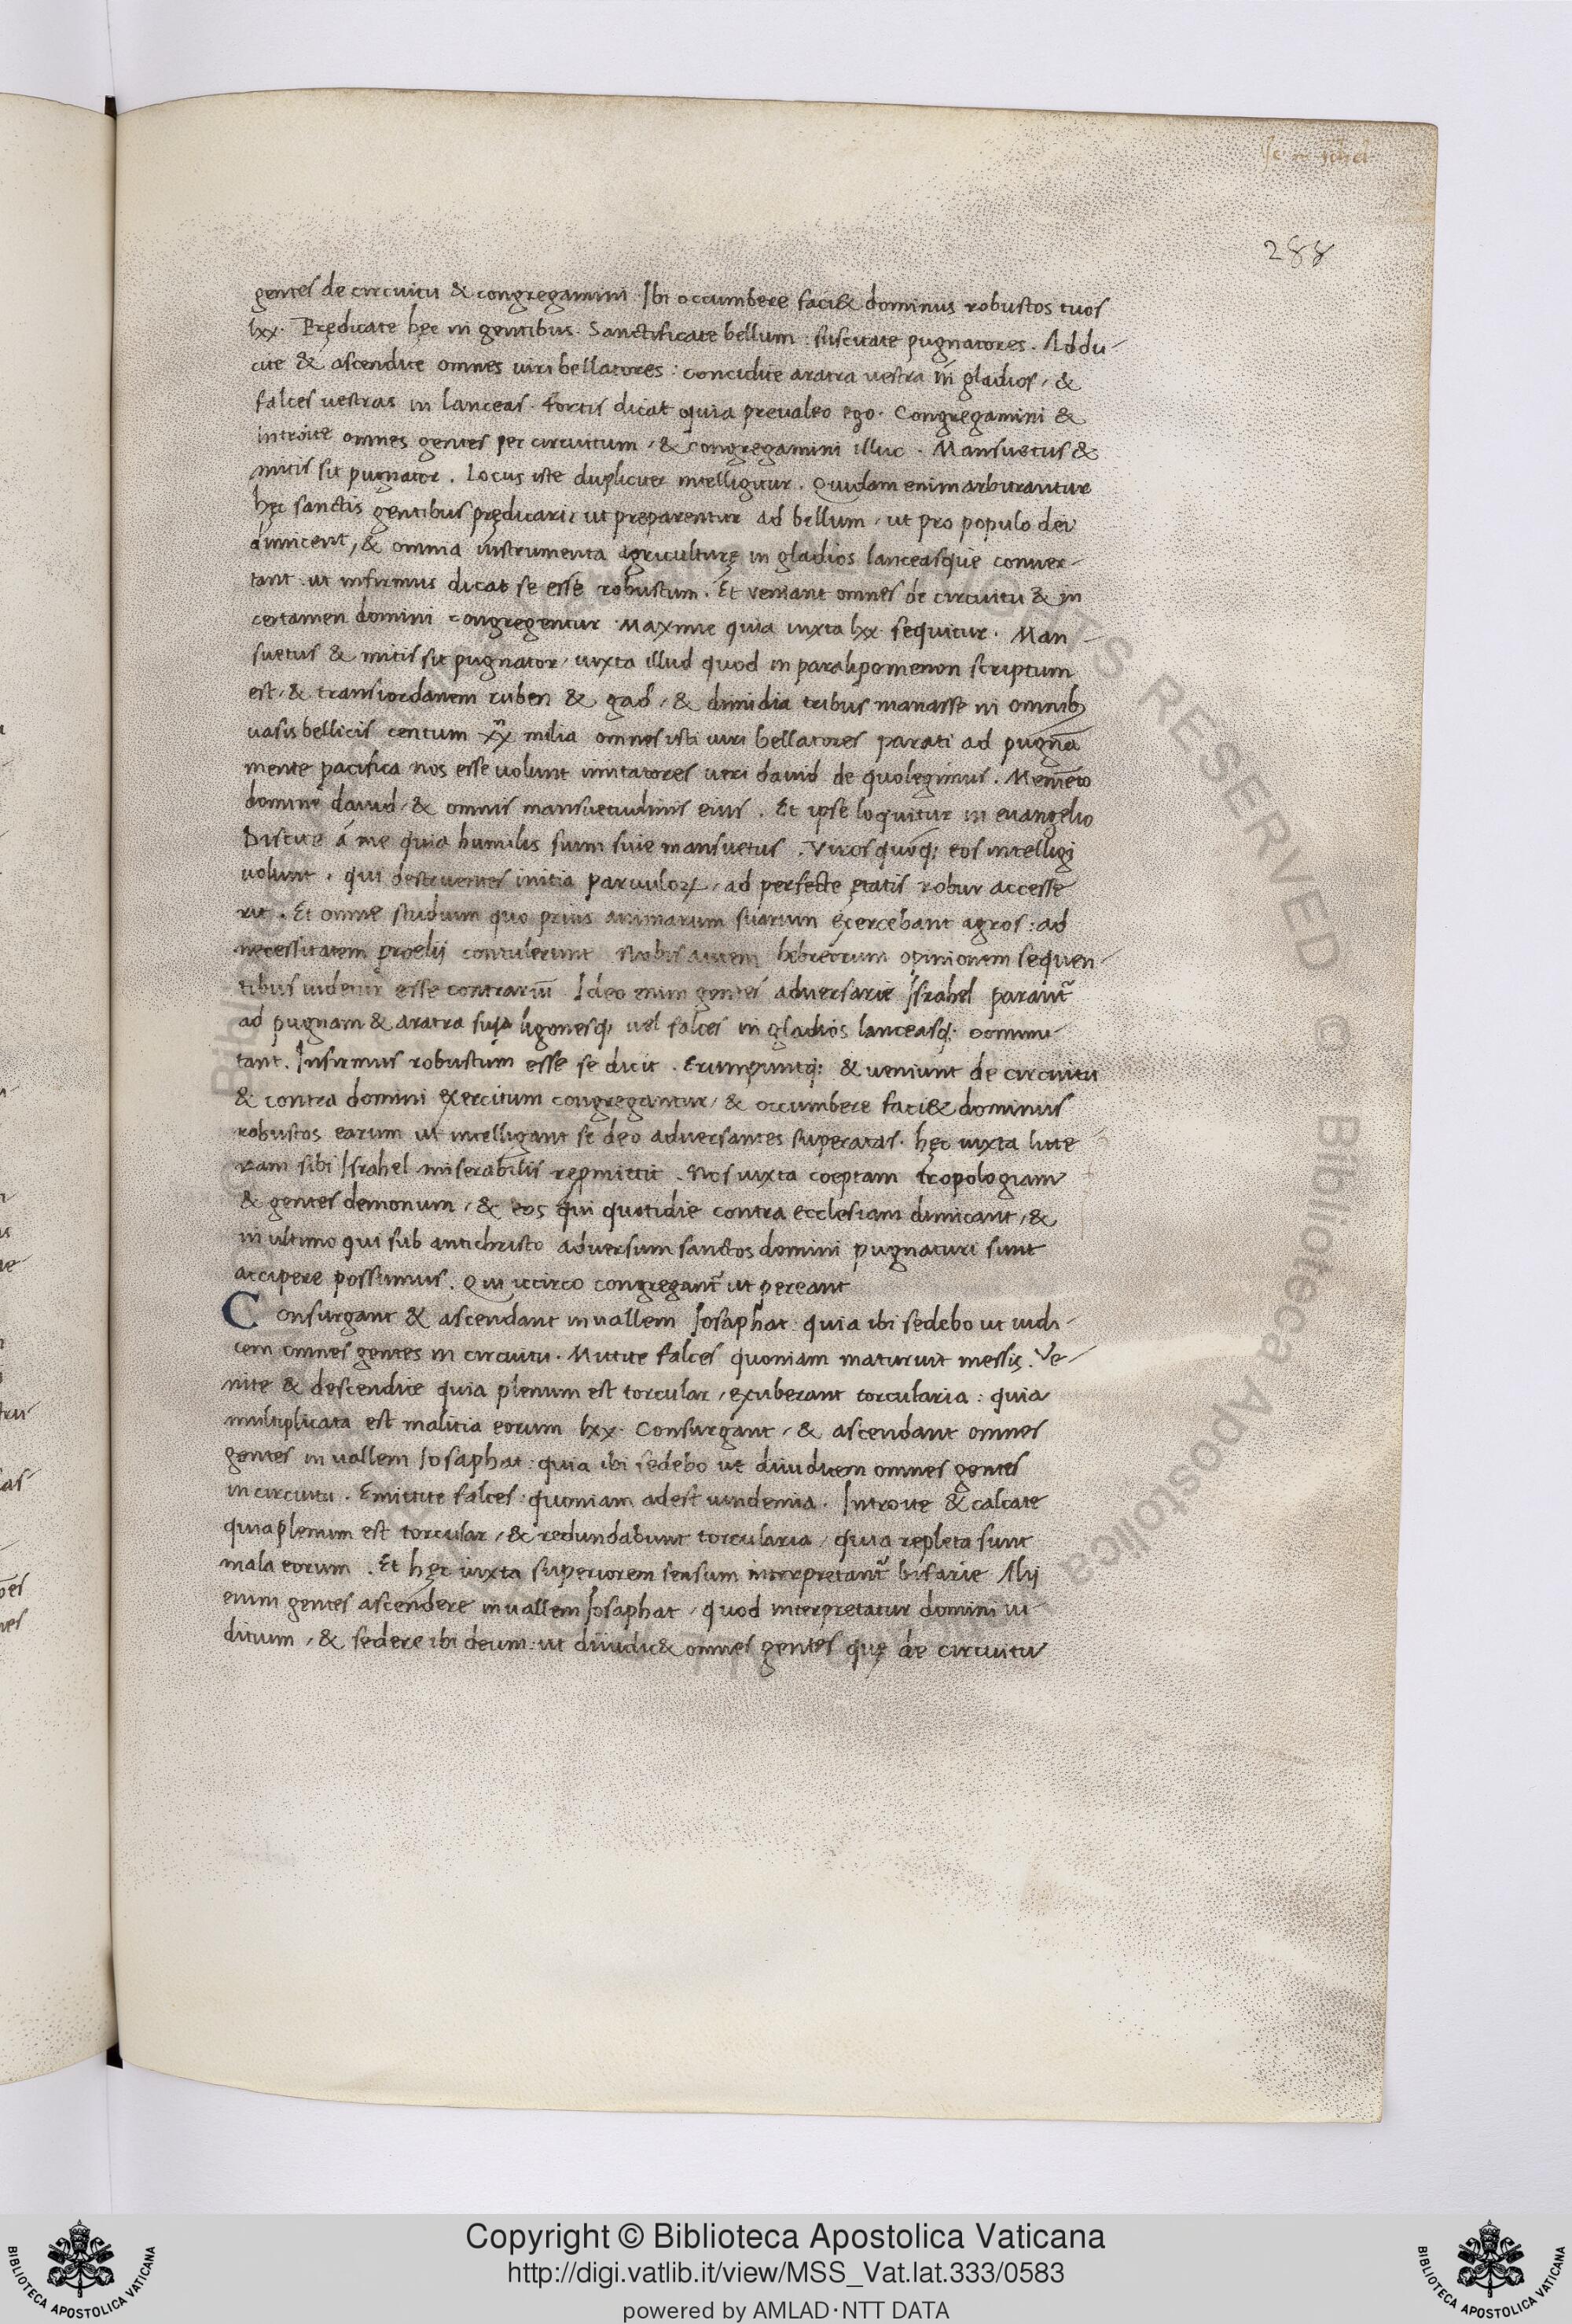 288
gentes de circuitu & congregamini. Ibi occumbere faci& dominus robustos tuos
lxx. Predicate hęc in gentibus. Sanctificate bellum: suscitate pugnatores. Addu-
cite & ascendite omnes uiri bellatores: concidite aratra uestra in gladios, &
falces uestras in lanceas. Fortis dicat quia preualeo ego. Congregamini &
introite omnes gentes per circuitum, & congregamini illuc. Mansuetus &
mitis sit pugnator. Locus iste dupliciter intelligitur. Quidam enim arbitrantur
hęc sanctis gentibus prędicari, ut preparentur ad bellum, ut pro populo dei
dimicent, & omnia instrumenta agriculturę in gladios lanceasque conuer-
tant. ut infirmus dicat se esse robustum. Et veniant omnes de circuitu & in
certamen domini congregentur. Maxime quia iuxta lxx sequitur. Man-
suetus & mitis sit pugnator, iuxta illud quod in paralipomenon scriptum
est, & transiordanem ruben & gad, & dimidia tribus manasse in omnib;
uasis bellicis centum xx milia omnes isti uiri bellatores parati ad pugnā
mente pacifica nos esse uolunt imitatores ueri dauid de quo legimus. Memēto
domine dauid, & omnis mansuetudinis eius. Et ipse loquitur in euangelio
Discite á me quia humilis sum suie mansuetus. Viros quoq; eos intelligi
uolunt. qui destruentes initia paruuloꝝ, ad perfecte ętatis robur accesse
rit. Et omne studium quo prius animarum suarum exercebant agros: ad
necessitatem proelij contulerunt. Nobis autem hebreorum opinionem sequen-
tibus uidetur esse contrariū. Ideo enim gentes aduersarie Israhel parant̄
ad pugnam & aratra sua ligonesq; uel falces in gladios lanceasq; commu-
tant. Infirmus robustum esse se dicit. Erumpuntq; & ueniunt de circuitu
& contra domini exercitum congregantur, & occumbere faci& dominus
robustos earum ut intelligant se deo aduersantes superatas. hęc iuxta litte
ram sibi Israhel miserabilis repmittit. Nos iuxta coeptam tropologiam
& gentes demonum, & eos qui quotidie contra ecclesiam dimicant, &
in ultimo qui sub antichristo aduersum sanctos domini pugnaturi sunt
accipere possumus. Qui iccirco congregant̄ ut pereant
Consurgant & ascendant in uallem Iosaphat: quia ibi sedebo ut iudi-
cem omnes gentes in circuitu. Mittite falces quoniam maturuit messis. Ve-
nite & descendite quia plenum est torcular, exuberant torcularia: quia
multiplicata est malitia eorum lxx. Consurgant, & ascendant omnes
gentes in uallem Iosaphat: quia ibi sedebo ut diiudicem omnes gentes
in circuitu. Emittite falces: quoniam adest uindemia. Introite & calcate
quia plenum est torcular, & redundabunt torcularia, quia repleta sunt
mala eorum. Et hęc iuxta superiorem sensum interpretant̄ bifarie Alij
enim gentes ascendere in uallem Iosaphat, quod interpretatur domini iu-
ditium, & sedere ibi deum: ut diiudic& omnes gentes quę de circuitu
Copyright © Biblioteca Apostolica Vaticana
http://digi.vatlib.it/view/MSS_Vat.lat.333/0583
powered by AMLAD·NTT DATA
BIBLIOTECA APOSTOLICA VATICANA
BIBLIOTECA APOSTOLICA VATICANA